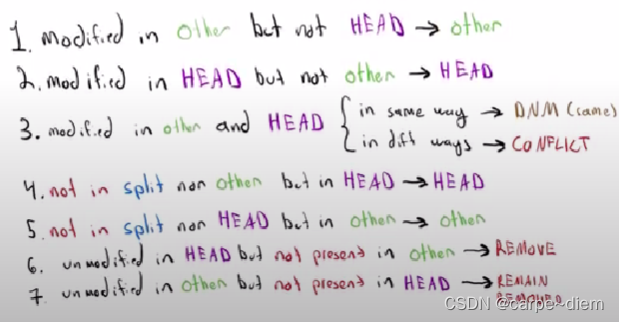 1. modified in other but not HEAD → other
2. modified in HEAD but not other → HEAD
3. modified in other and HEAD { in same way → DNM (same)
in diff ways → CONFLICT
4. not in split nor other but in HEAD → HEAD
5. not in split nor HEAD but in other → other
6. unmodified in HEAD but not present in other → REMOVE
7. unmodified in other but not present in HEAD → REMAIN
REMOVED
CSDN @carpe~diem